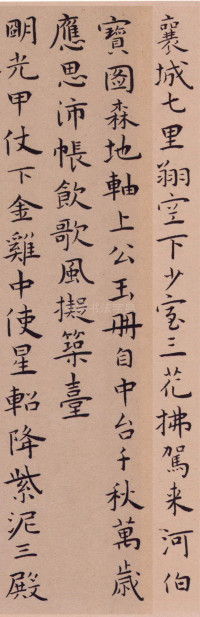 襄城七里翔空下少室三花拂駕来河伯
寶圖森地軸上公玉冊自中台千秋萬歳
應思沛帳飲歌風擬築臺
明光甲仗下金雞中使星軺降紫泥三殿